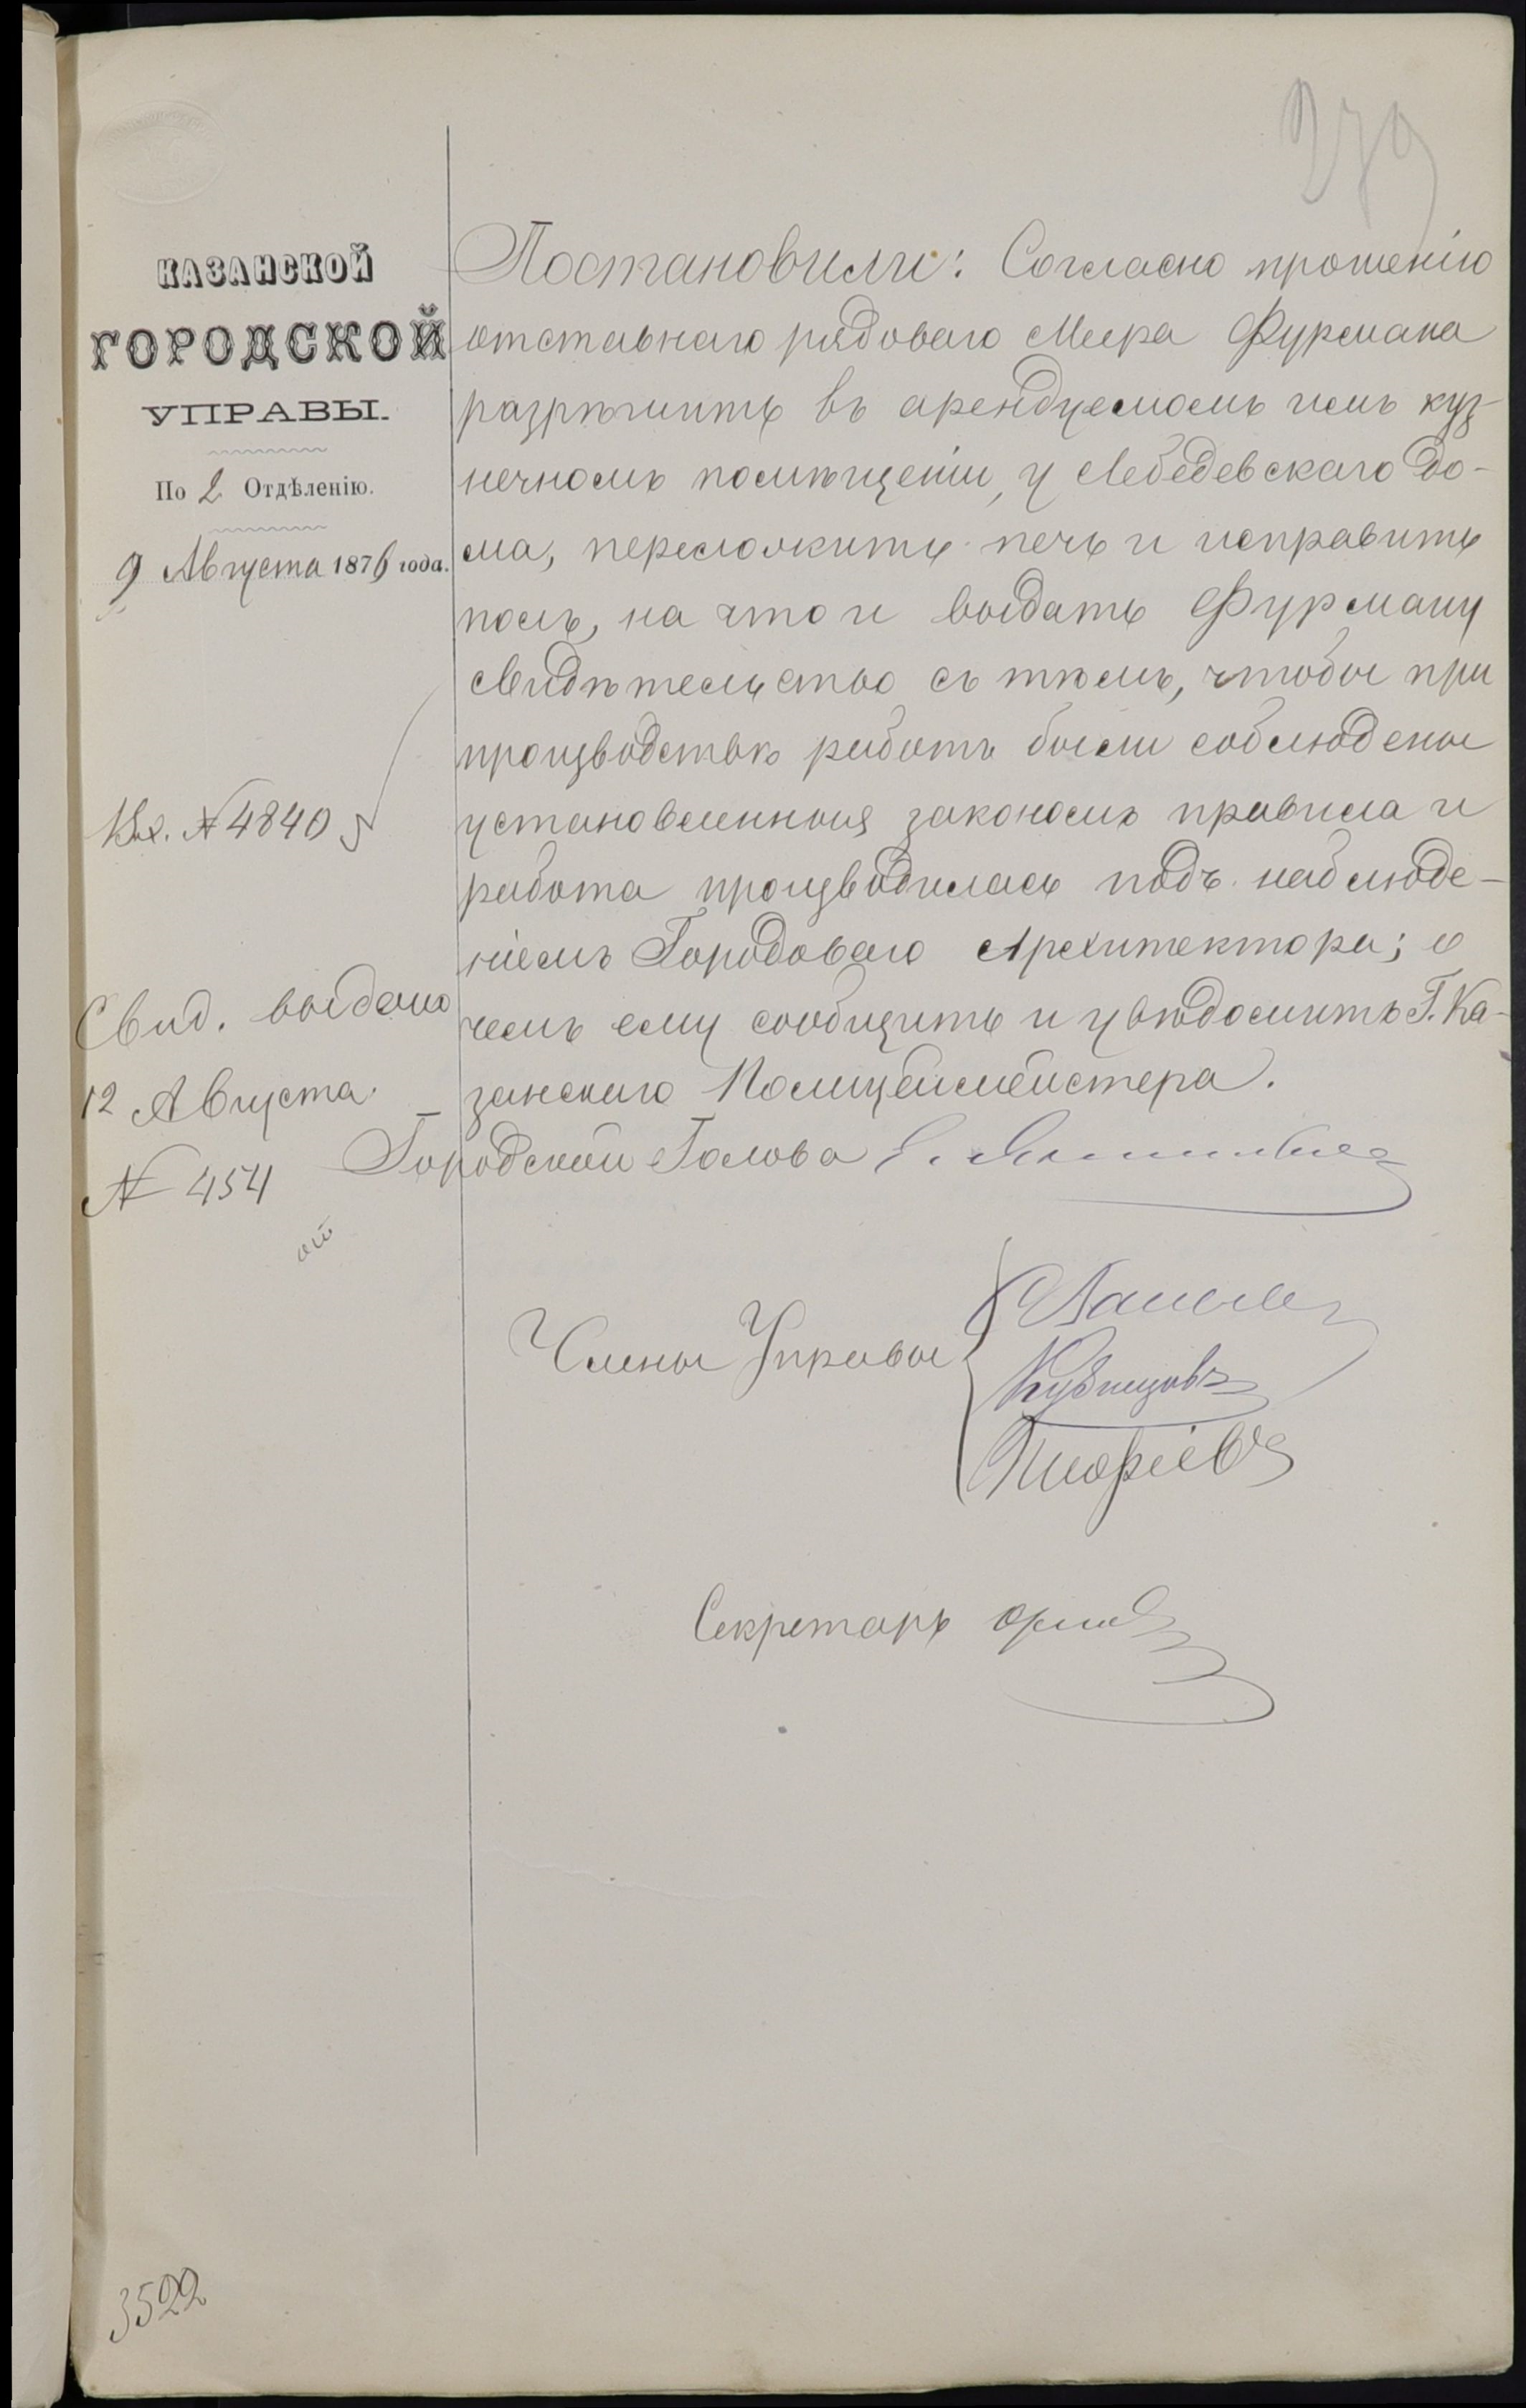 279
КАЗАНСКОЙ
ГОРОДСКОЙ
УПРАВЫ.
По 2 Отдѣленію.
9 Августа 1876 года.
Вх. № 4840
Свид. выдано
12 Августа
№ 454
Постановили: Согласно прошенію
отставнаго рядоваго Меера Фурмана
разрѣшить въ арендуемомъ имъ куз-
нечномъ помѣщеніи, у Лебедевскаго до-
ма, переложить печь и исправить
полъ, на что и выдать Фурману
свидѣтельство съ тѣмъ, чтобы при
производствѣ работъ были соблюдены
установленныя закономъ правила и
работа производилась подъ наблюде-
ніемъ Городоваго Архитектора; о
чемъ ему сообщить и увѣдомить Г. Ка-
занскаго Полицеймейстера.
Городской Голова
Члены Управы
Кузнецовъ
Секретарь Орлов
3522